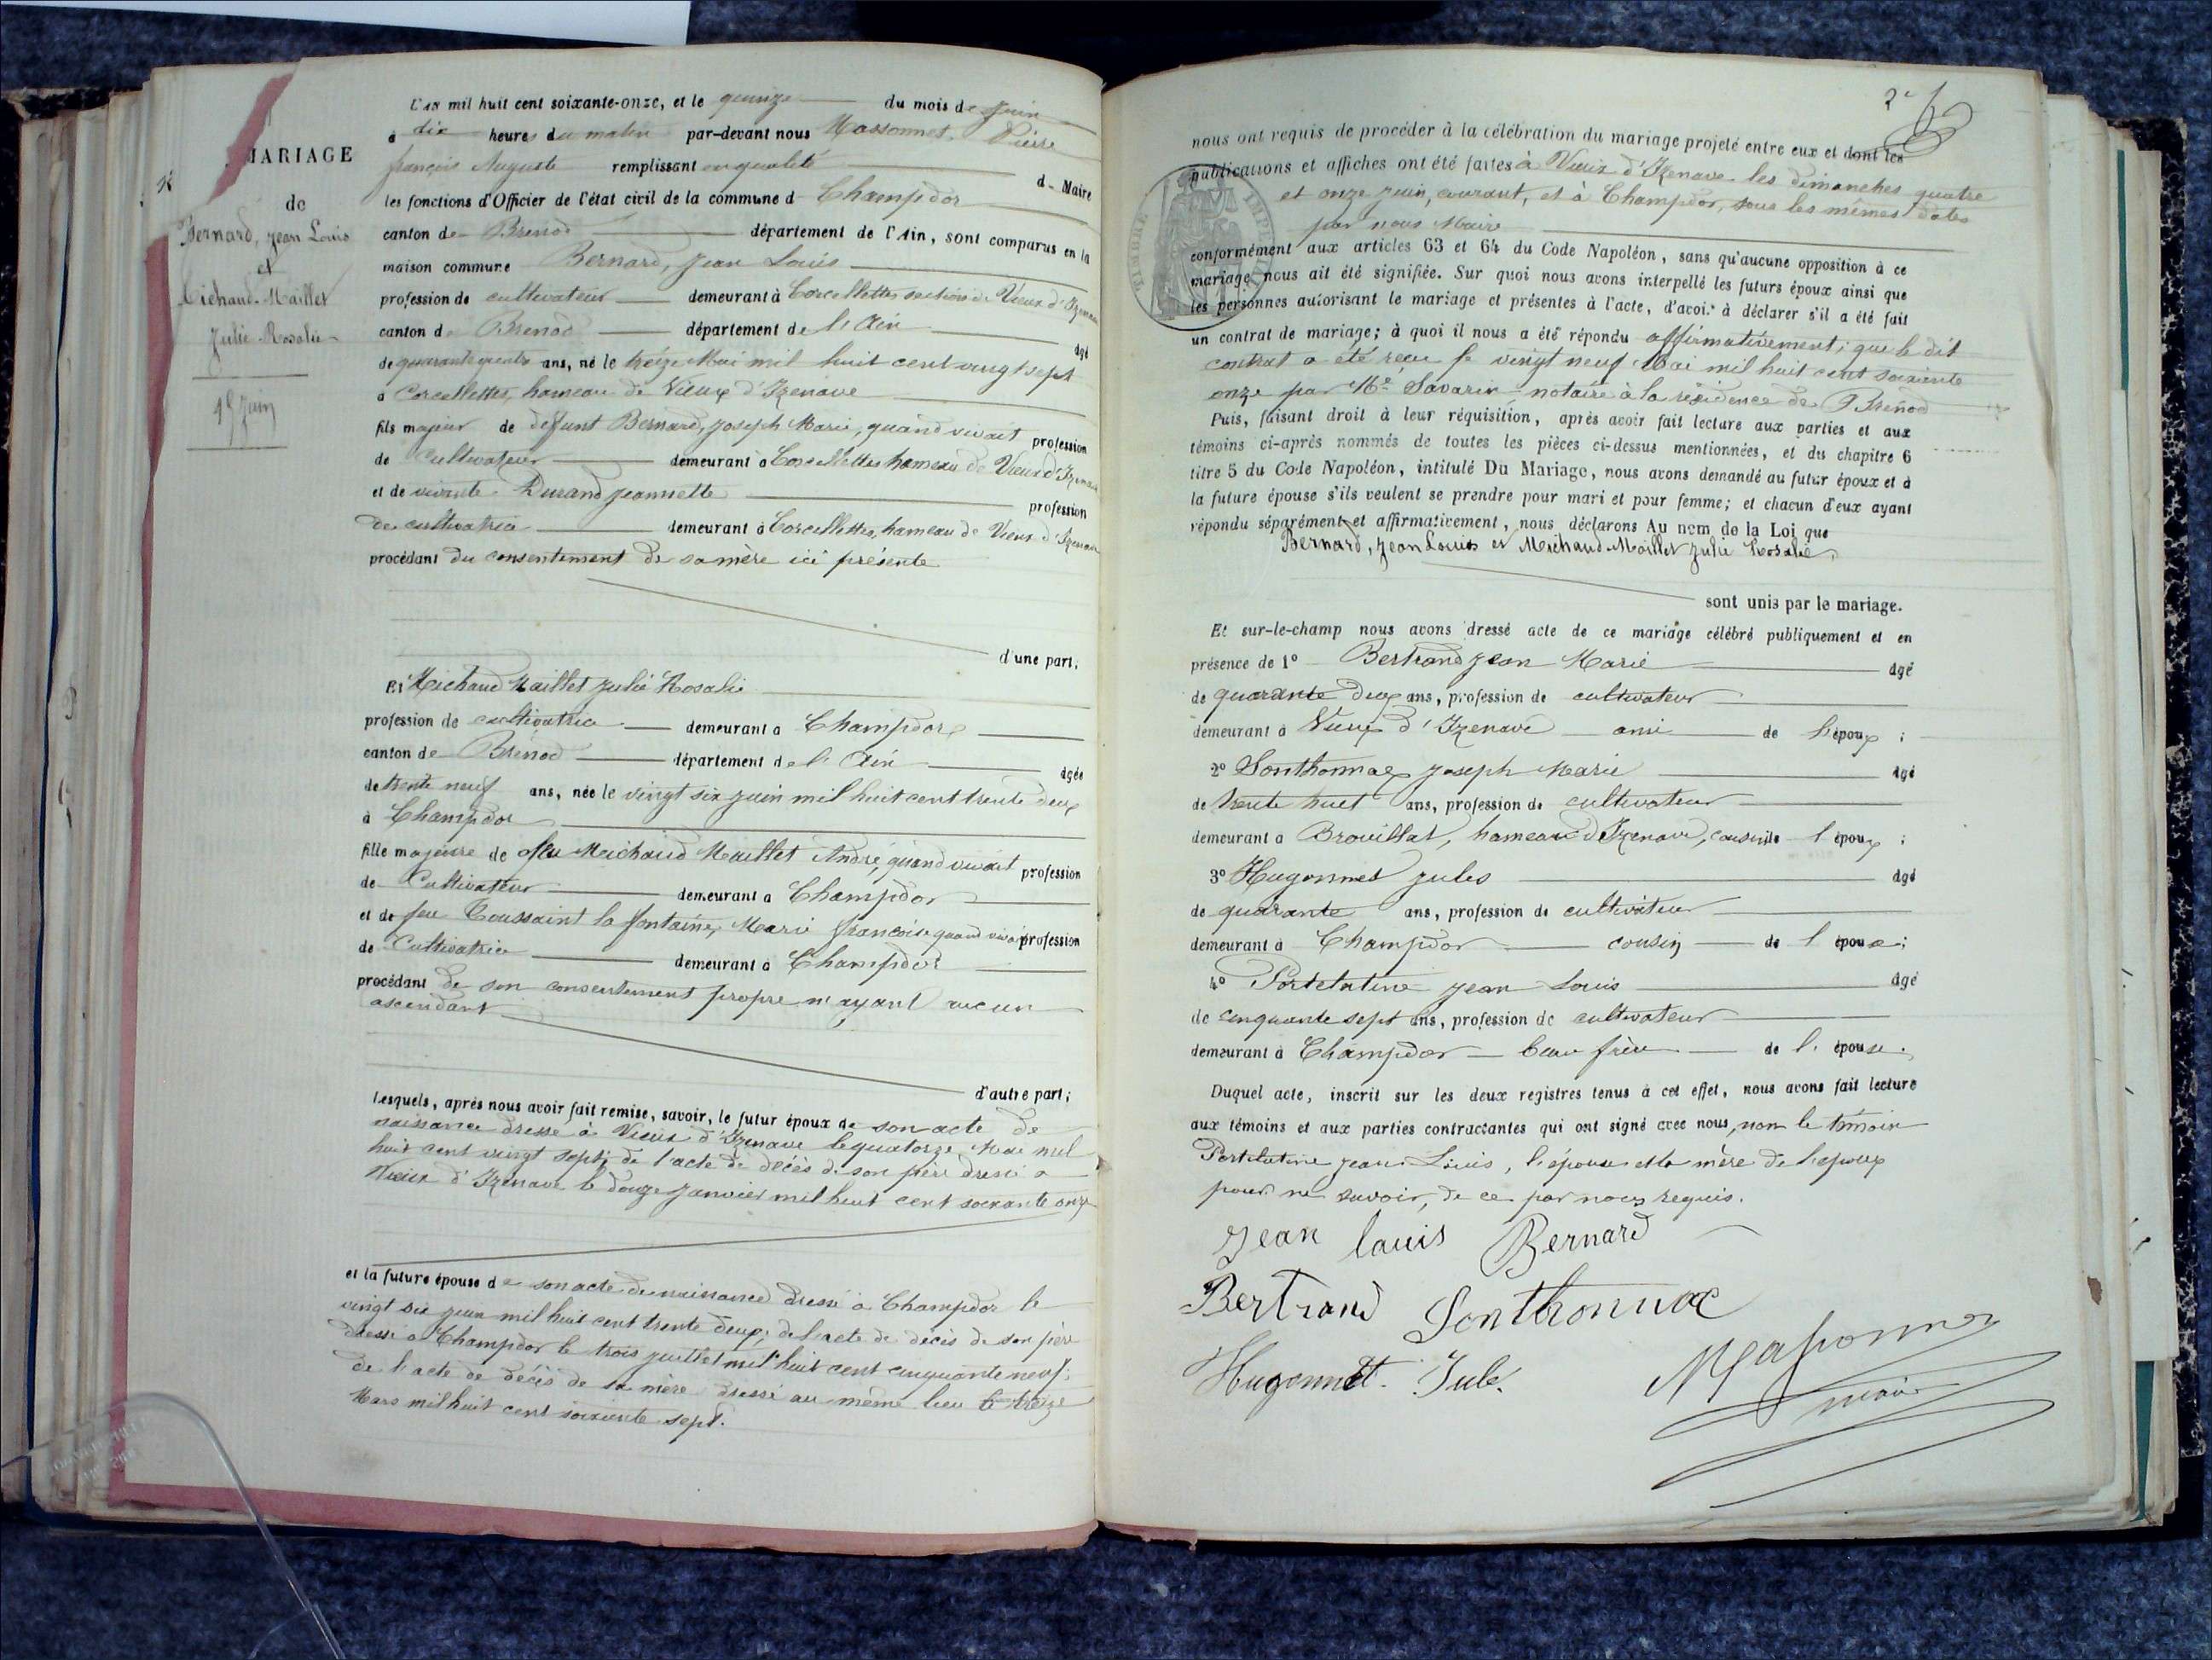 MARIAGE
de
Bernard, Jean Louis
et
Michaud-Maillet
Julie Rosalie
15 Juin
L'an mil huit cent soixante-onze, et le quinze du mois de Juin
à dix heures du matin par-devant nous Massonnet Pierre
françois Auguste remplissant en qualité de Maire
les fonctions d'Officier de l'état civil de la commune d Champdor
canton de Brenod département de l'Ain, sont comparus en la
maison commune Bernard, Jean Louis
profession de cultivateur demeurant à Corcellettes section de Vieux d'Izenave
canton de Brenod département de l'Ain âgé
de quarante quatre ans, né le treize Mai mil huit cent vingt sept
à Corcellettes, hameau de Vieux d'Izenave
fils majeur de défunt Bernard, Joseph Marie, quand vivait profession
de cultivateur demeurant à Corcellettes hameau de Vieux d'Izenave
et de vivante Durand Jeannette profession
de cultivatrice demeurant à Corcellettes, hameau de Vieux d'Izenave
procédant du consentement de sa mère ici présente
d'une part,
Et Michaud Maillet Julie Rosalie
profession de cultivatrice demeurant à Champdor
canton de Brénod département de l'Ain âgée
de trente neuf ans, née le vingt six juin mil huit cent trente deux
à Champdor
fille majeure de feu Michaud Maillet André, quand vivait profession
de Cultivateur demeurant à Champdor
et de feu Toussaint la fontaine, Marie françoise quand vivait profession
de Cultivatrice demeurant à Champdor
procédant de son consentement propre n'ayant aucun
ascendant
d'autre part;
Lesquels, après nous avoir fait remise, savoir, le futur époux de son acte de
naissance dressé à Vieux d'Izenave le quatorze Mai mil
huit cent vingt sept; de l'acte de décès de son père dressé à
Vieux d'Izenave le douze Janvier mil huit cent soixante onze
et la future épouse de son acte de naissance dressé à Champdor le
vingt six juin mil huit cent trente deux; de l'acte de décès de son père
dressé à Champdor le trois juillet mil huit cent cinquante neuf;
de l'acte de décès de sa mère dressé au même lieu le treize
Mars mil huit cent soixante sept.
2e
nous ont requis de procéder à la célébration du mariage projeté entre eux et dont les
publications et affiches ont été faites à Vieux d'Izenave les dimanches quatre
et onze juin, courant, et à Champdor, sous les mêmes dates
par nous Maire
TIMBRE IMPERIAL
conformément aux articles 63 et 64 du Code Napoléon, sans qu'aucune opposition à ce
mariage nous ait été signifiée. Sur quoi nous avons interpellé les futurs époux ainsi que
les personnes autorisant le mariage et présentes à l'acte, d'avoir à déclarer s'il a été fait
un contrat de mariage; à quoi il nous a été répondu affirmativement; que le dit
contrat a été reçu le vingt neuf Mai mil huit cent soixante
onze par Me Savarin notaire à la résidence de Brénod
Puis, faisant droit à leur réquisition, après avoir fait lecture aux parties et aux
témoins ci-après nommés de toutes les pièces ci-dessus mentionnées, et du chapitre 6
titre 5 du Code Napoléon, intitulé Du Mariage, nous avons demandé au futur époux et à
la future épouse s'ils veulent se prendre pour mari et pour femme; et chacun d'eux ayant
répondu séparément et affirmativement, nous déclarons Au nom de la Loi que
Bernard, Jean Louis et Michaud Maillet Julie Rosalie
sont unis par le mariage.
Et sur-le-champ nous avons dressé acte de ce mariage célébré publiquement et en
présence de 1° Bertrand Jean Marie âgé
de quarante deux ans, profession de cultivateur
demeurant à Vieux d'Izenave ami de l'époux;
2° Sonthonnax Joseph Marie âgé
de trente huit ans, profession de cultivateur
demeurant à Brouillat, hameau d'Izenave, cousin de l'époux;
3° Hugonnet Jules âgé
de quarante ans, profession de cultivateur
demeurant à Champdor cousin de l'épouse;
4° Portelatine Jean Louis âgé
de cinquante sept ans, profession de cultivateur
demeurant à Champdor beau frère de l'épouse.
Duquel acte, inscrit sur les deux registres tenus à cet effet, nous avons fait lecture
aux témoins et aux parties contractantes qui ont signé avec nous, non le témoin
Portelatine Jean Louis, l'épouse et la mère de l'époux
pour ne savoir, de ce par nous requis.
Jean louis Bernard
Bertrand Sonthonnax
Hugonnet Jule.
Massonnet
maire